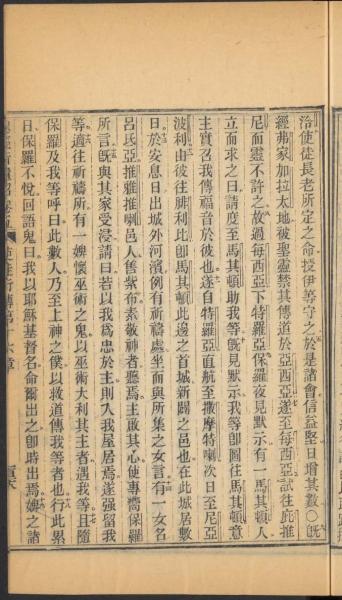 洽使徒長老所定之命授伊等守之於是諸會信益堅日增其數〇既
經弗家加拉太地被聖靈禁其傳道於亞西亞遂至每西亞試往庇推
尼而靈不許之故過每西亞下特羅亞保羅夜見默示有一馬其頓人
立而求之曰請度至馬其頓助我等既見默示我等卽圖往馬其頓意
主實召我傳福音於彼也遂自特羅亞直航至撒摩特喇次日至尼亞
波利由彼往腓利比卽馬其頓此邊之首城新闢之邑也在此城居數
日於安息日出城外河濱例有祈禱處坐而與所集之女言有一女名
呂氐亞推雅推喇邑人售紫布素敬神者聽焉主啟其心使專嚮保羅
所言既與其家受浸請曰若以我為忠於主則入我屋居焉遂强留我
等適往祈禱所有一婢懷巫術之鬼以巫術大利其主者遇我等且隨
保羅及我等呼曰此數人乃至上神之僕以救道傳我等者也行此累
日保羅不悅回語鬼曰我以耶穌基督名命爾出之卽時出焉婢之諸